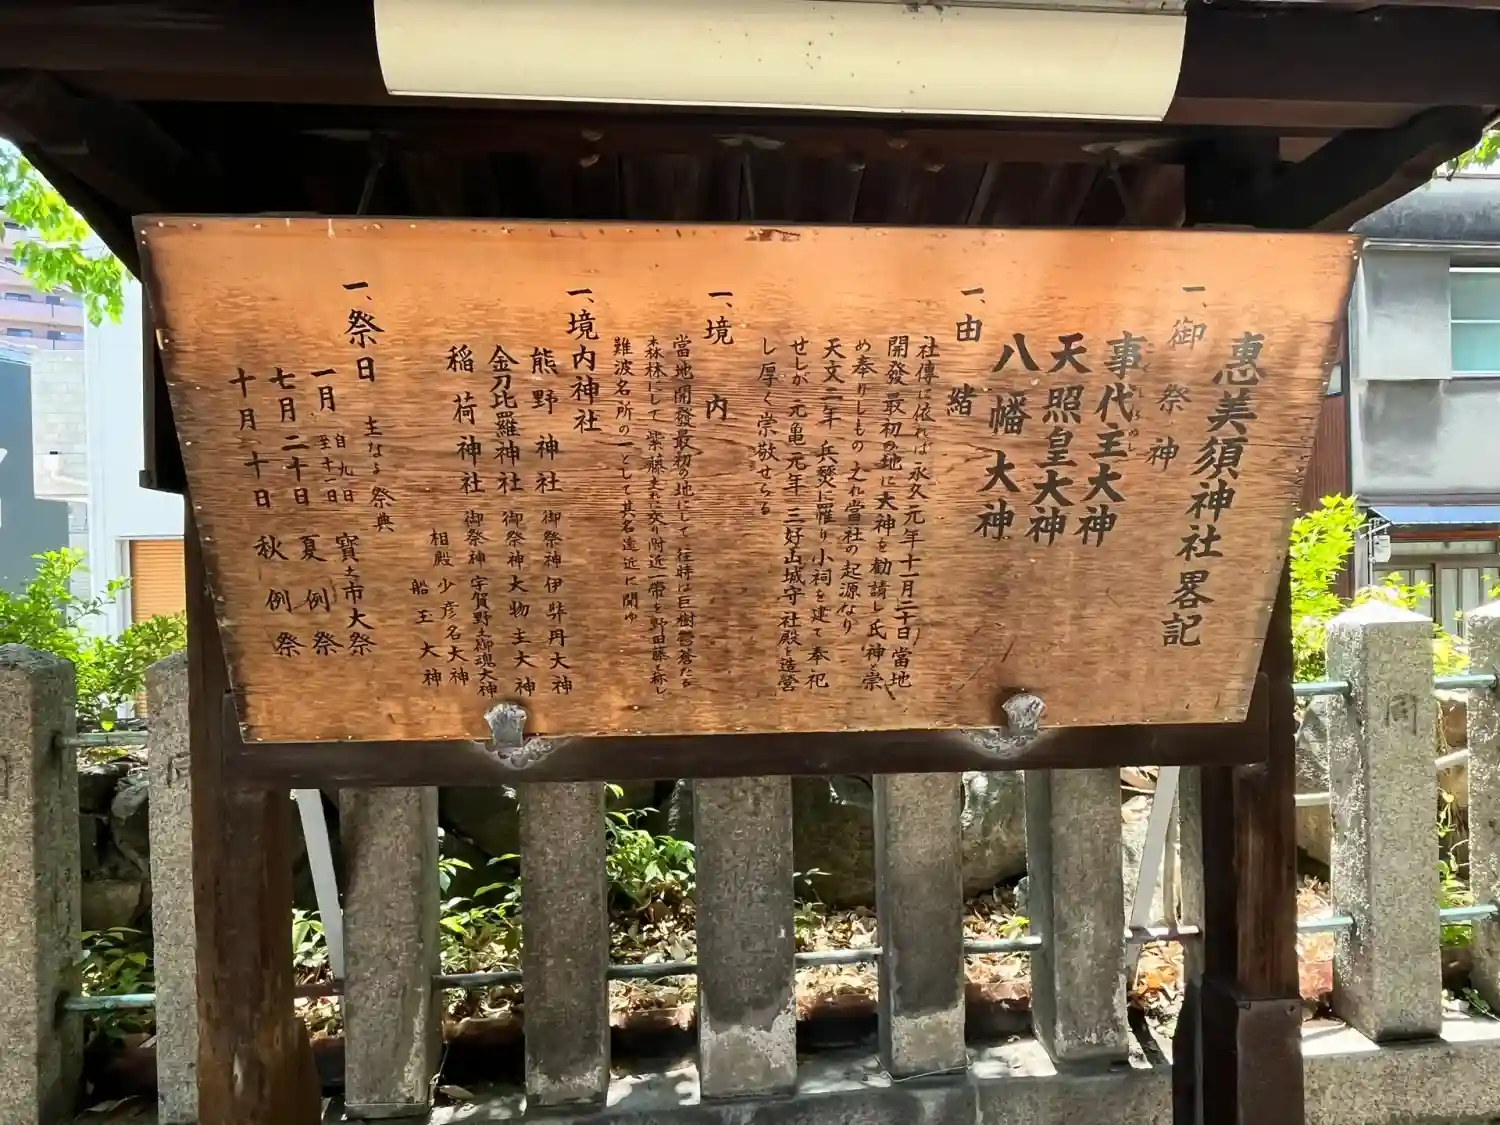 惠美須神社畧記
一、御祭神
事代主大神
天照皇大神
八幡大神
一、由緒
社傳に依れば 永久元年十一月二十日 當地
開發最初の地に大神を勧請し氏神と崇
め奉りしもの之れ當社の起源なり
天文二年 兵燹に罹り小祠を建て奉祀
せしが 元亀元年 三好山城守 社殿を造營
し厚く崇敬せらる
一、境内
當地開發最初の地にして 往時は巨樹鬱蒼たる
森林にして 紫藤之れに交り附近一帯を野田藤と称し
難波名所の一として其名遠近に聞ゆ
一、境内神社
熊野神社 御祭神 伊弉丹大神
金刀比羅神社 御祭神 大物主大神
稲荷神社 御祭神 宇賀野之御魂大神
相殿 少彦名大神
船玉大神
一、祭日 主なる祭典
一月 自九日 至十一日 寶之市大祭
七月二十日 夏例祭
十月十日 秋例祭